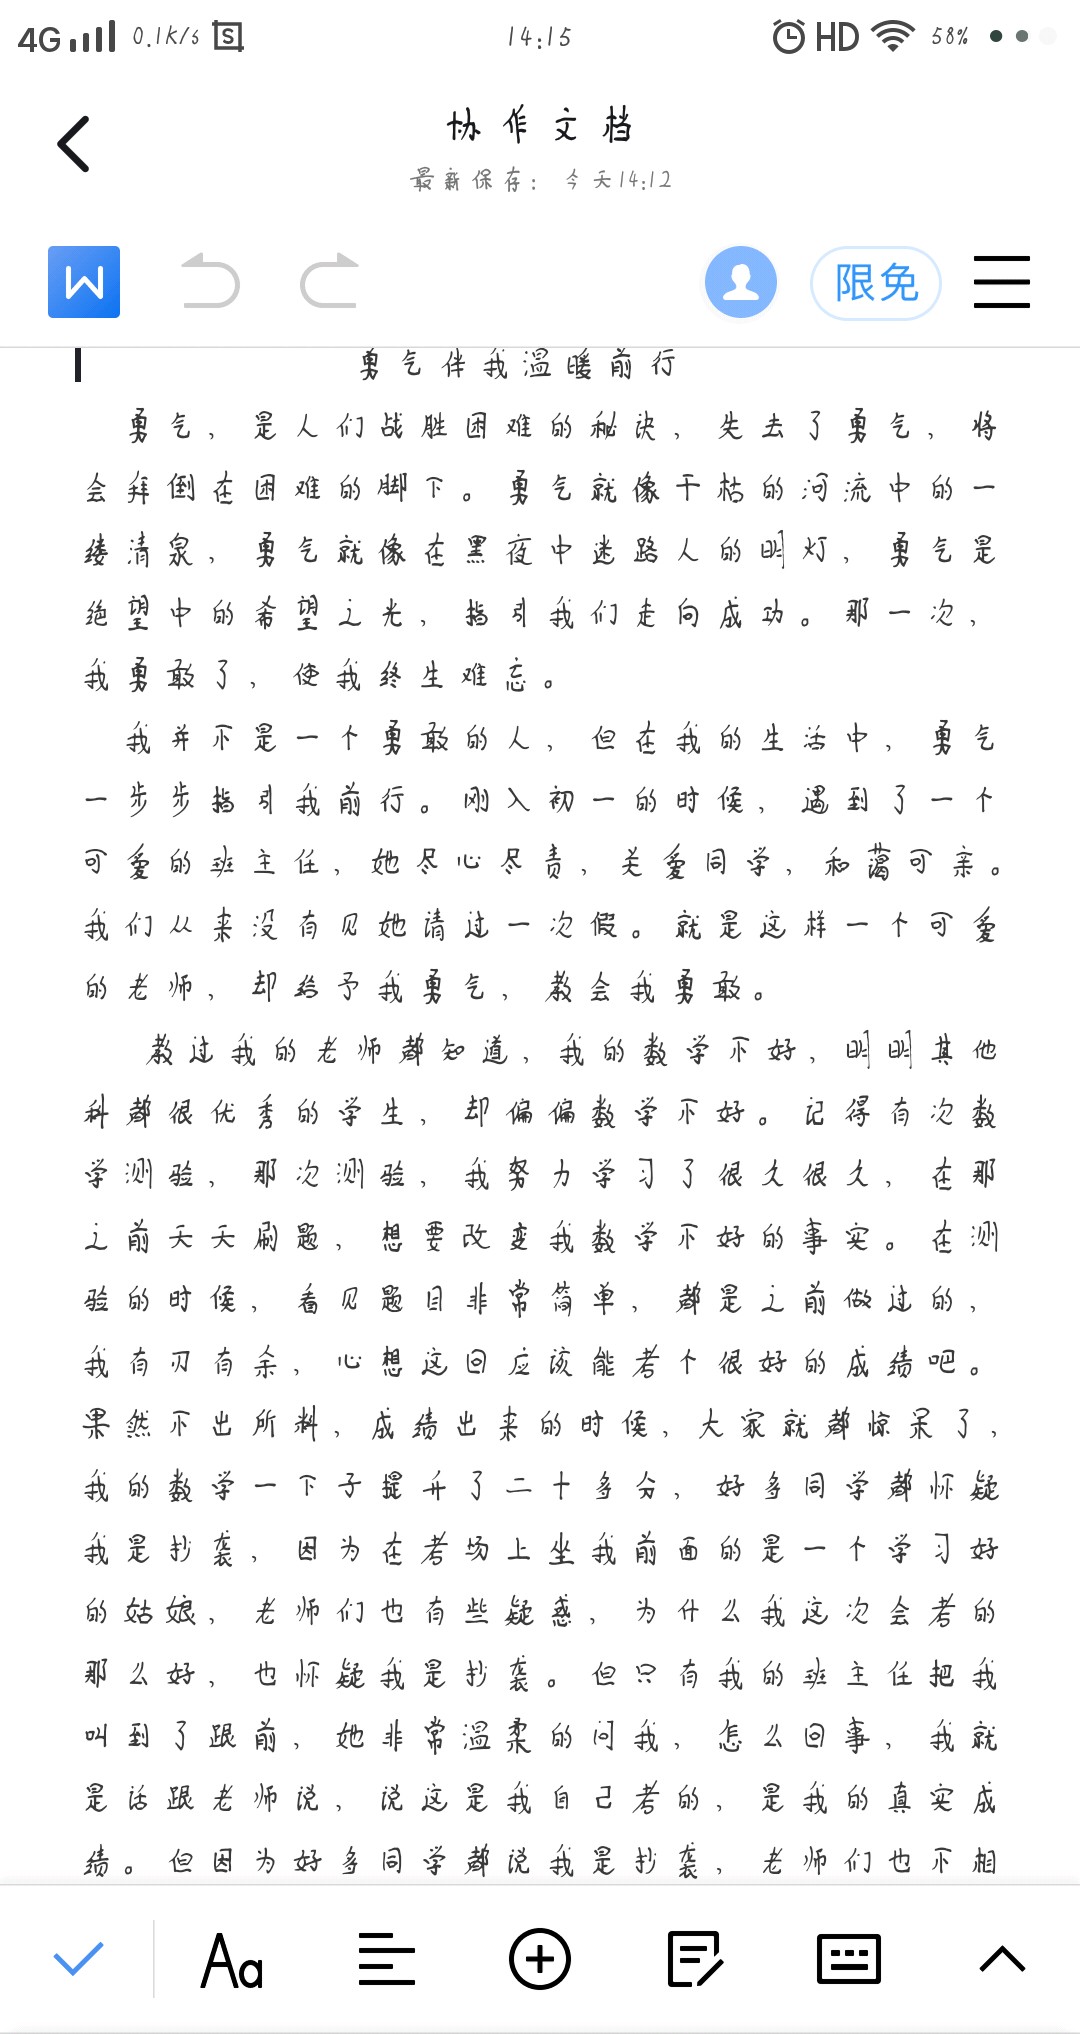 4G 0.1K/s 14:15 HD 58%
协作文档
最新保存: 今天14:12
限免
勇气伴我温暖前行
勇气，是人们战胜困难的秘诀，失去了勇气，将
会拜倒在困难的脚下。勇气就像干枯的河流中的一
缕清泉，勇气就像在黑夜中迷路人的明灯，勇气是
绝望中的希望之光，指引我们走向成功。那一次，
我勇敢了，使我终生难忘。
我并不是一个勇敢的人，但在我的生活中，勇气
一步步指引我前行。刚入初一的时候，遇到了一个
可爱的班主任，她尽心尽责，关爱同学，和蔼可亲。
我们从来没有见她请过一次假。就是这样一个可爱
的老师，却给予我勇气，教会我勇敢。
教过我的老师都知道，我的数学不好，明明其他
科都很优秀的学生，却偏偏数学不好。记得有次数
学测验，那次测验，我努力学习了很久很久，在那
之前天天刷题，想要改变我数学不好的事实。在测
验的时候，看见题目非常简单，都是之前做过的，
我有刃有余，心想这回应该能考个很好的成绩吧。
果然不出所料，成绩出来的时候，大家就都惊呆了，
我的数学一下子提升了二十多分，好多同学都怀疑
我是抄袭，因为在考场上坐我前面的是一个学习好
的姑娘，老师们也有些疑惑，为什么我这次会考的
那么好，也怀疑我是抄袭。但只有我的班主任把我
叫到了跟前，她非常温柔的问我，怎么回事，我就
是话跟老师说，说这是我自己考的，是我的真实成
绩。但因为好多同学都说我是抄袭，老师们也不相
Aa